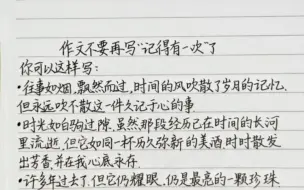 作文不要再写"记得有一次"了
你可以这样写:
·往事如烟,飘然而过,时间的风吹散了岁月的记忆,
但永远吹不散这一件久记于心的事
·时光如白驹过隙,虽然那段经历已在时间的长河
里流逝,但它如同一杯历久弥新的美酒时时散发
出芳香并在我心底永存.
·许多年过去了,但它仍耀眼,仍是最亮的一颗珍珠